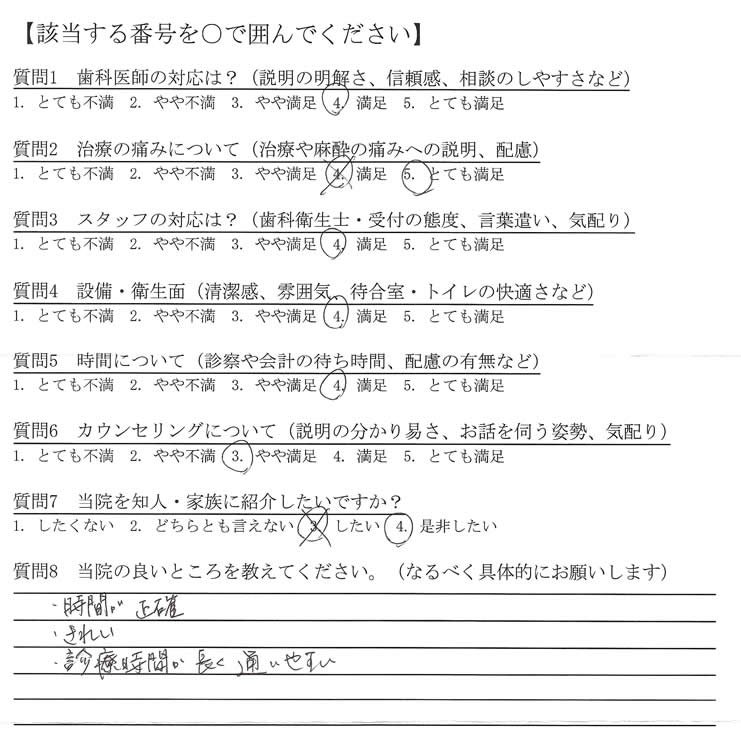 【該当する番号を○で囲んでください】
質問1 歯科医師の対応は？（説明の明解さ、信頼感、相談のしやすさなど）
1. とても不満 2. やや不満 3. やや満足 4. 満足 5. とても満足
質問2 治療の痛みについて（治療や麻酔の痛みへの説明、配慮）
1. とても不満 2. やや不満 3. やや満足 4. 満足 5. とても満足
質問3 スタッフの対応は？（歯科衛生士・受付の態度、言葉遣い、気配り）
1. とても不満 2. やや不満 3. やや満足 4. 満足 5. とても満足
質問4 設備・衛生面（清潔感、雰囲気、待合室・トイレの快適さなど）
1. とても不満 2. やや不満 3. やや満足 4. 満足 5. とても満足
質問5 時間について（診察や会計の待ち時間、配慮の有無など）
1. とても不満 2. やや不満 3. やや満足 4. 満足 5. とても満足
質問6 カウンセリングについて（説明の分かり易さ、お話を伺う姿勢、気配り）
1. とても不満 2. やや不満 3. やや満足 4. 満足 5. とても満足
質問7 当院を知人・家族に紹介したいですか？
1. したくない 2. どちらとも言えない 3. したい 4. 是非したい
質問8 当院の良いところを教えてください。（なるべく具体的にお願いします）
・時間が正確
・きれい
・診療時間が長く通いやすい